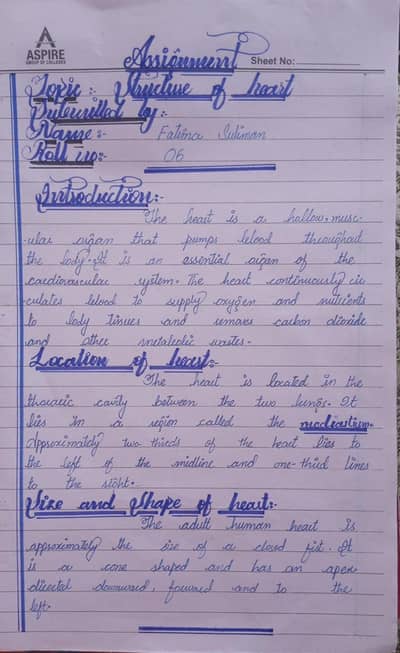 ASPIRE
GROUP OF COLLEGES
Assignment
Sheet No:
Topic :- Structure of heart
Submitted by:-
Name:- Fatima Suliman
Roll no:- 06
Introduction:-
The heart is a hollow. musc-
-ular organ that pumps blood throughout
the body. It is an essential organ of the
cardiovascular system. The heart continuously cir
culates blood to supply oxygen and nutrients
to body tissues and removes carbon dioxide
and other metabolic wastes.
Location of heart:-
The heart is located in the
thoracic cavity between the two lungs. It
lies in a region called the mediastinum.
Approximately two thirds of the heart lies to
the left of the midline and one-third lines
to the right.
Size and Shape of heart:-
The adult human heart is
approximately the size of a closed fist. It
is a cone shaped and has an apex
directed downward, forward and to the
left.